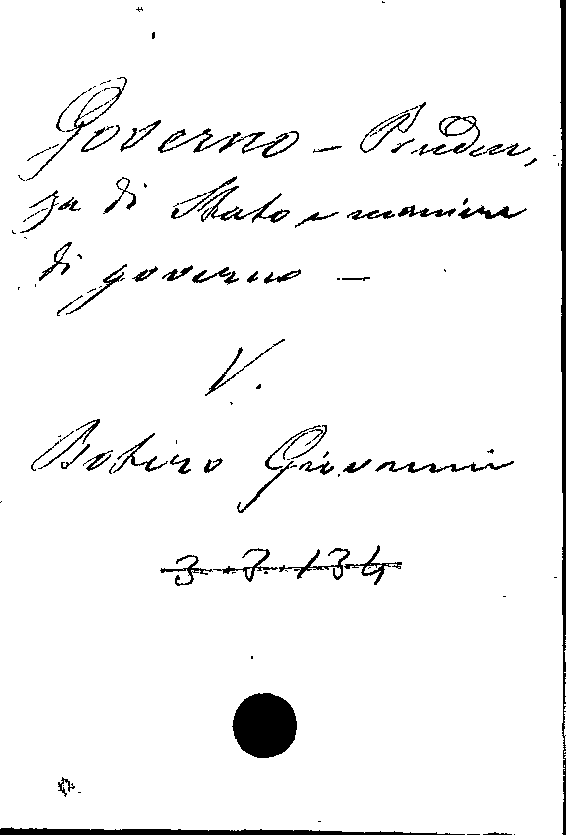 Governo - Pruden,
za di Stato e maniera
di governo -
V.
Botero Giovanni
3.7.134